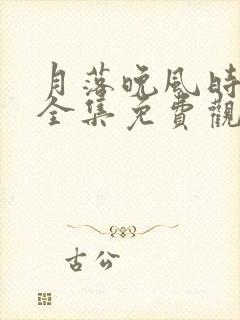 月落晚風時
全集免費觀
古公